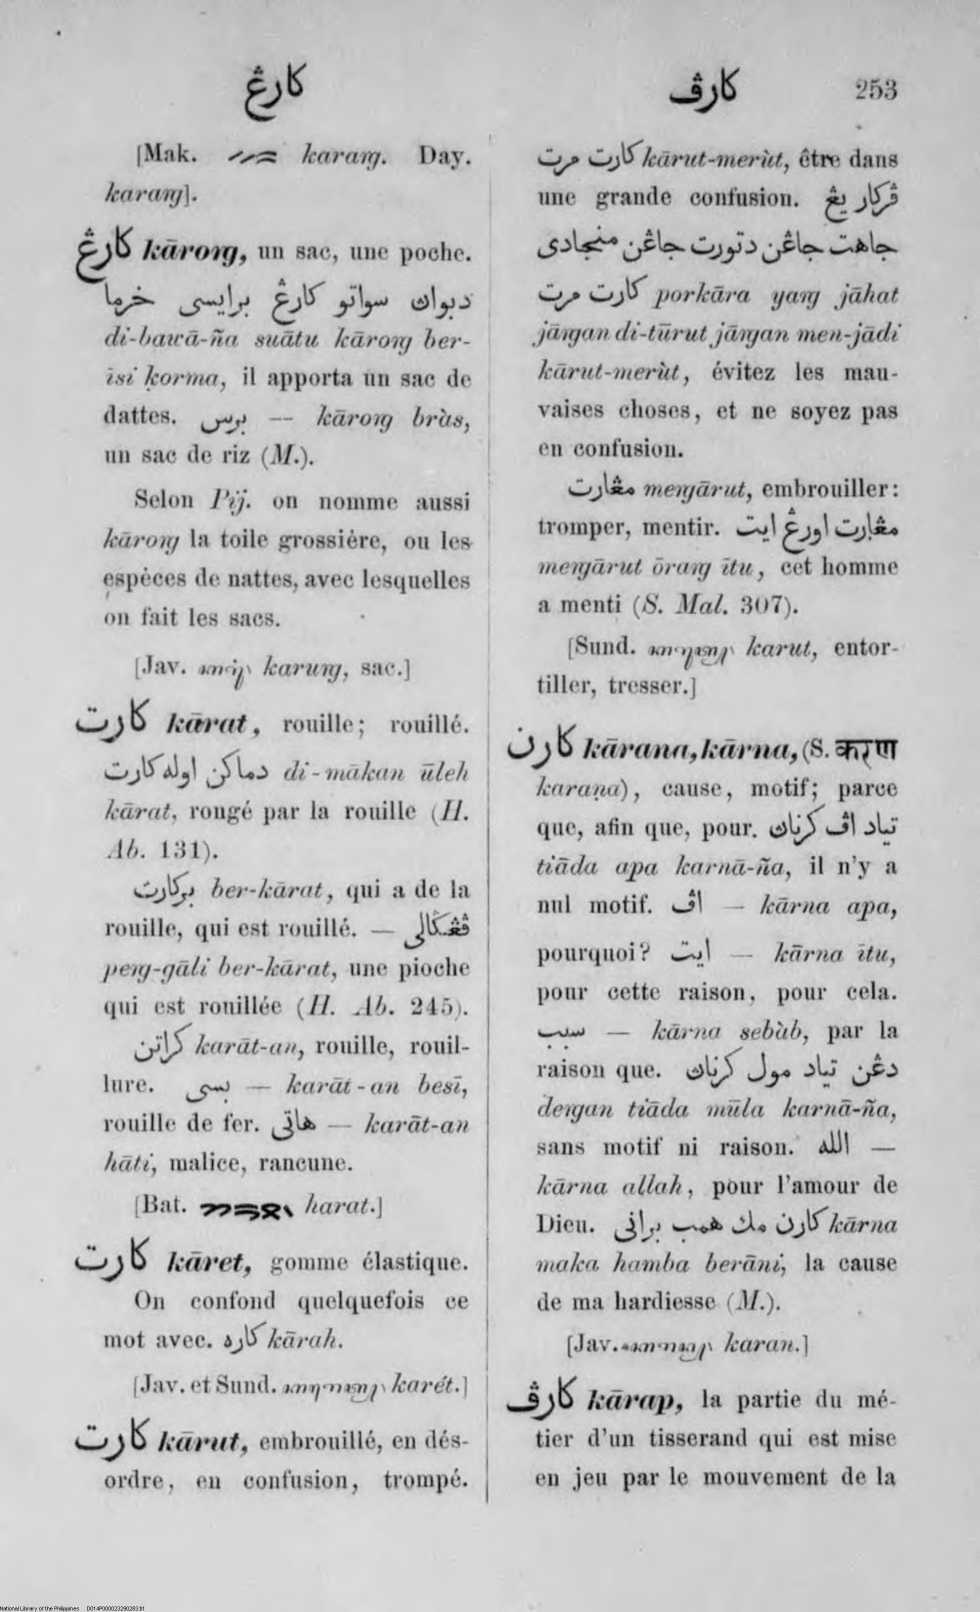 كارڠ
كارڤ 253
[Mak. karaŋ. Day.
karaŋ].
كارڠ kāroŋ, un sac, une poche.
دبواڽ سواتو كارڠ برايسى خرما
di-bawā-ña suātu kāroŋ ber-
īsi ḳorma, il apporta un sac de
dattes. برس — kāroŋ bràs,
un sac de riz (M.).
Selon Pij. on nomme aussi
kāroŋ la toile grossière, ou les
espèces de nattes, avec lesquelles
on fait les sacs.
[Jav. karuŋ, sac.]
كارت kārat, rouille; rouillé.
دماكن اوله كارت di-mākan ūleh
kārat, rongé par la rouille (H.
Ab. 131).
بركارت ber-kārat, qui a de la
rouille, qui est rouillé. — ڤڠݢالى
peŋ-gāli ber-kārat, une pioche
qui est rouillée (H. Ab. 245).
كراتن karāt-an, rouille, rouil-
lure. بسى — karāt-an besī,
rouille de fer. هاتى — karāt-an
hāti, malice, rancune.
[Bat. harat.]
كارت kāret, gomme élastique.
On confond quelquefois ce
mot avec. كاره kārah.
[Jav. et Sund. karét.]
كارت kārut, embrouillé, en dés-
ordre, en confusion, trompé.
كارت مرت kārut-merùt, être dans
une grande confusion. ڤركار يڠ
جاهت جاڠن دتورت جاڠن منجادى
كارت مرت porkāra yaŋ jāhat
jāŋan di-tūrut jāŋan men-jādi
kārut-merùt, évitez les mau-
vaises choses, et ne soyez pas
en confusion.
مڠارت meŋārut, embrouiller:
tromper, mentir. مڠارت اورڠ ايت
meŋārut ōraŋ ītu, cet homme
a menti (S. Mal. 307).
[Sund. karut, entor-
tiller, tresser.]
كارن kārana, kārna, (S. करण
karaṇa), cause, motif; parce
que, afin que, pour. تياد اڤ كرناڽ
tiāda apa karnā-ña, il n'y a
nul motif. اڤ — kārna apa,
pourquoi? ايت — kārna ītu,
pour cette raison, pour cela.
سبب — kārna sebàb, par la
raison que. دڠن تياد مول كرناڽ
deŋan tiāda mūla karnā-ña,
sans motif ni raison. الله —
kārna allah, pour l'amour de
Dieu. كارن مك همب برانى kārna
maka hamba berāni, la cause
de ma hardiesse (M.).
[Jav. karan.]
كارڤ kārap, la partie du mé-
tier d'un tisserand qui est mise
en jeu par le mouvement de la
National Library of the Philippines